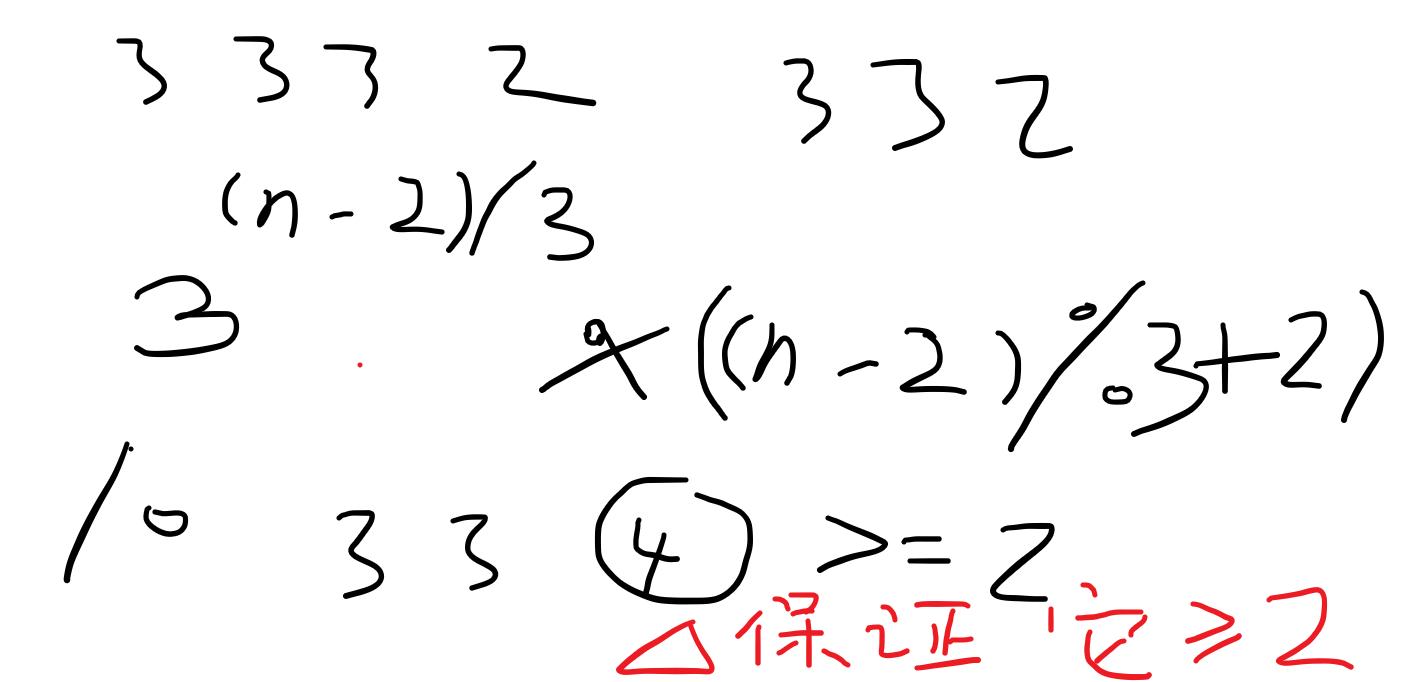 3 3 3 2 3 3 2
(n-2)/3
3 × ((n-2)%3+2)
10 3 3 4 >=2
△保证它≥2